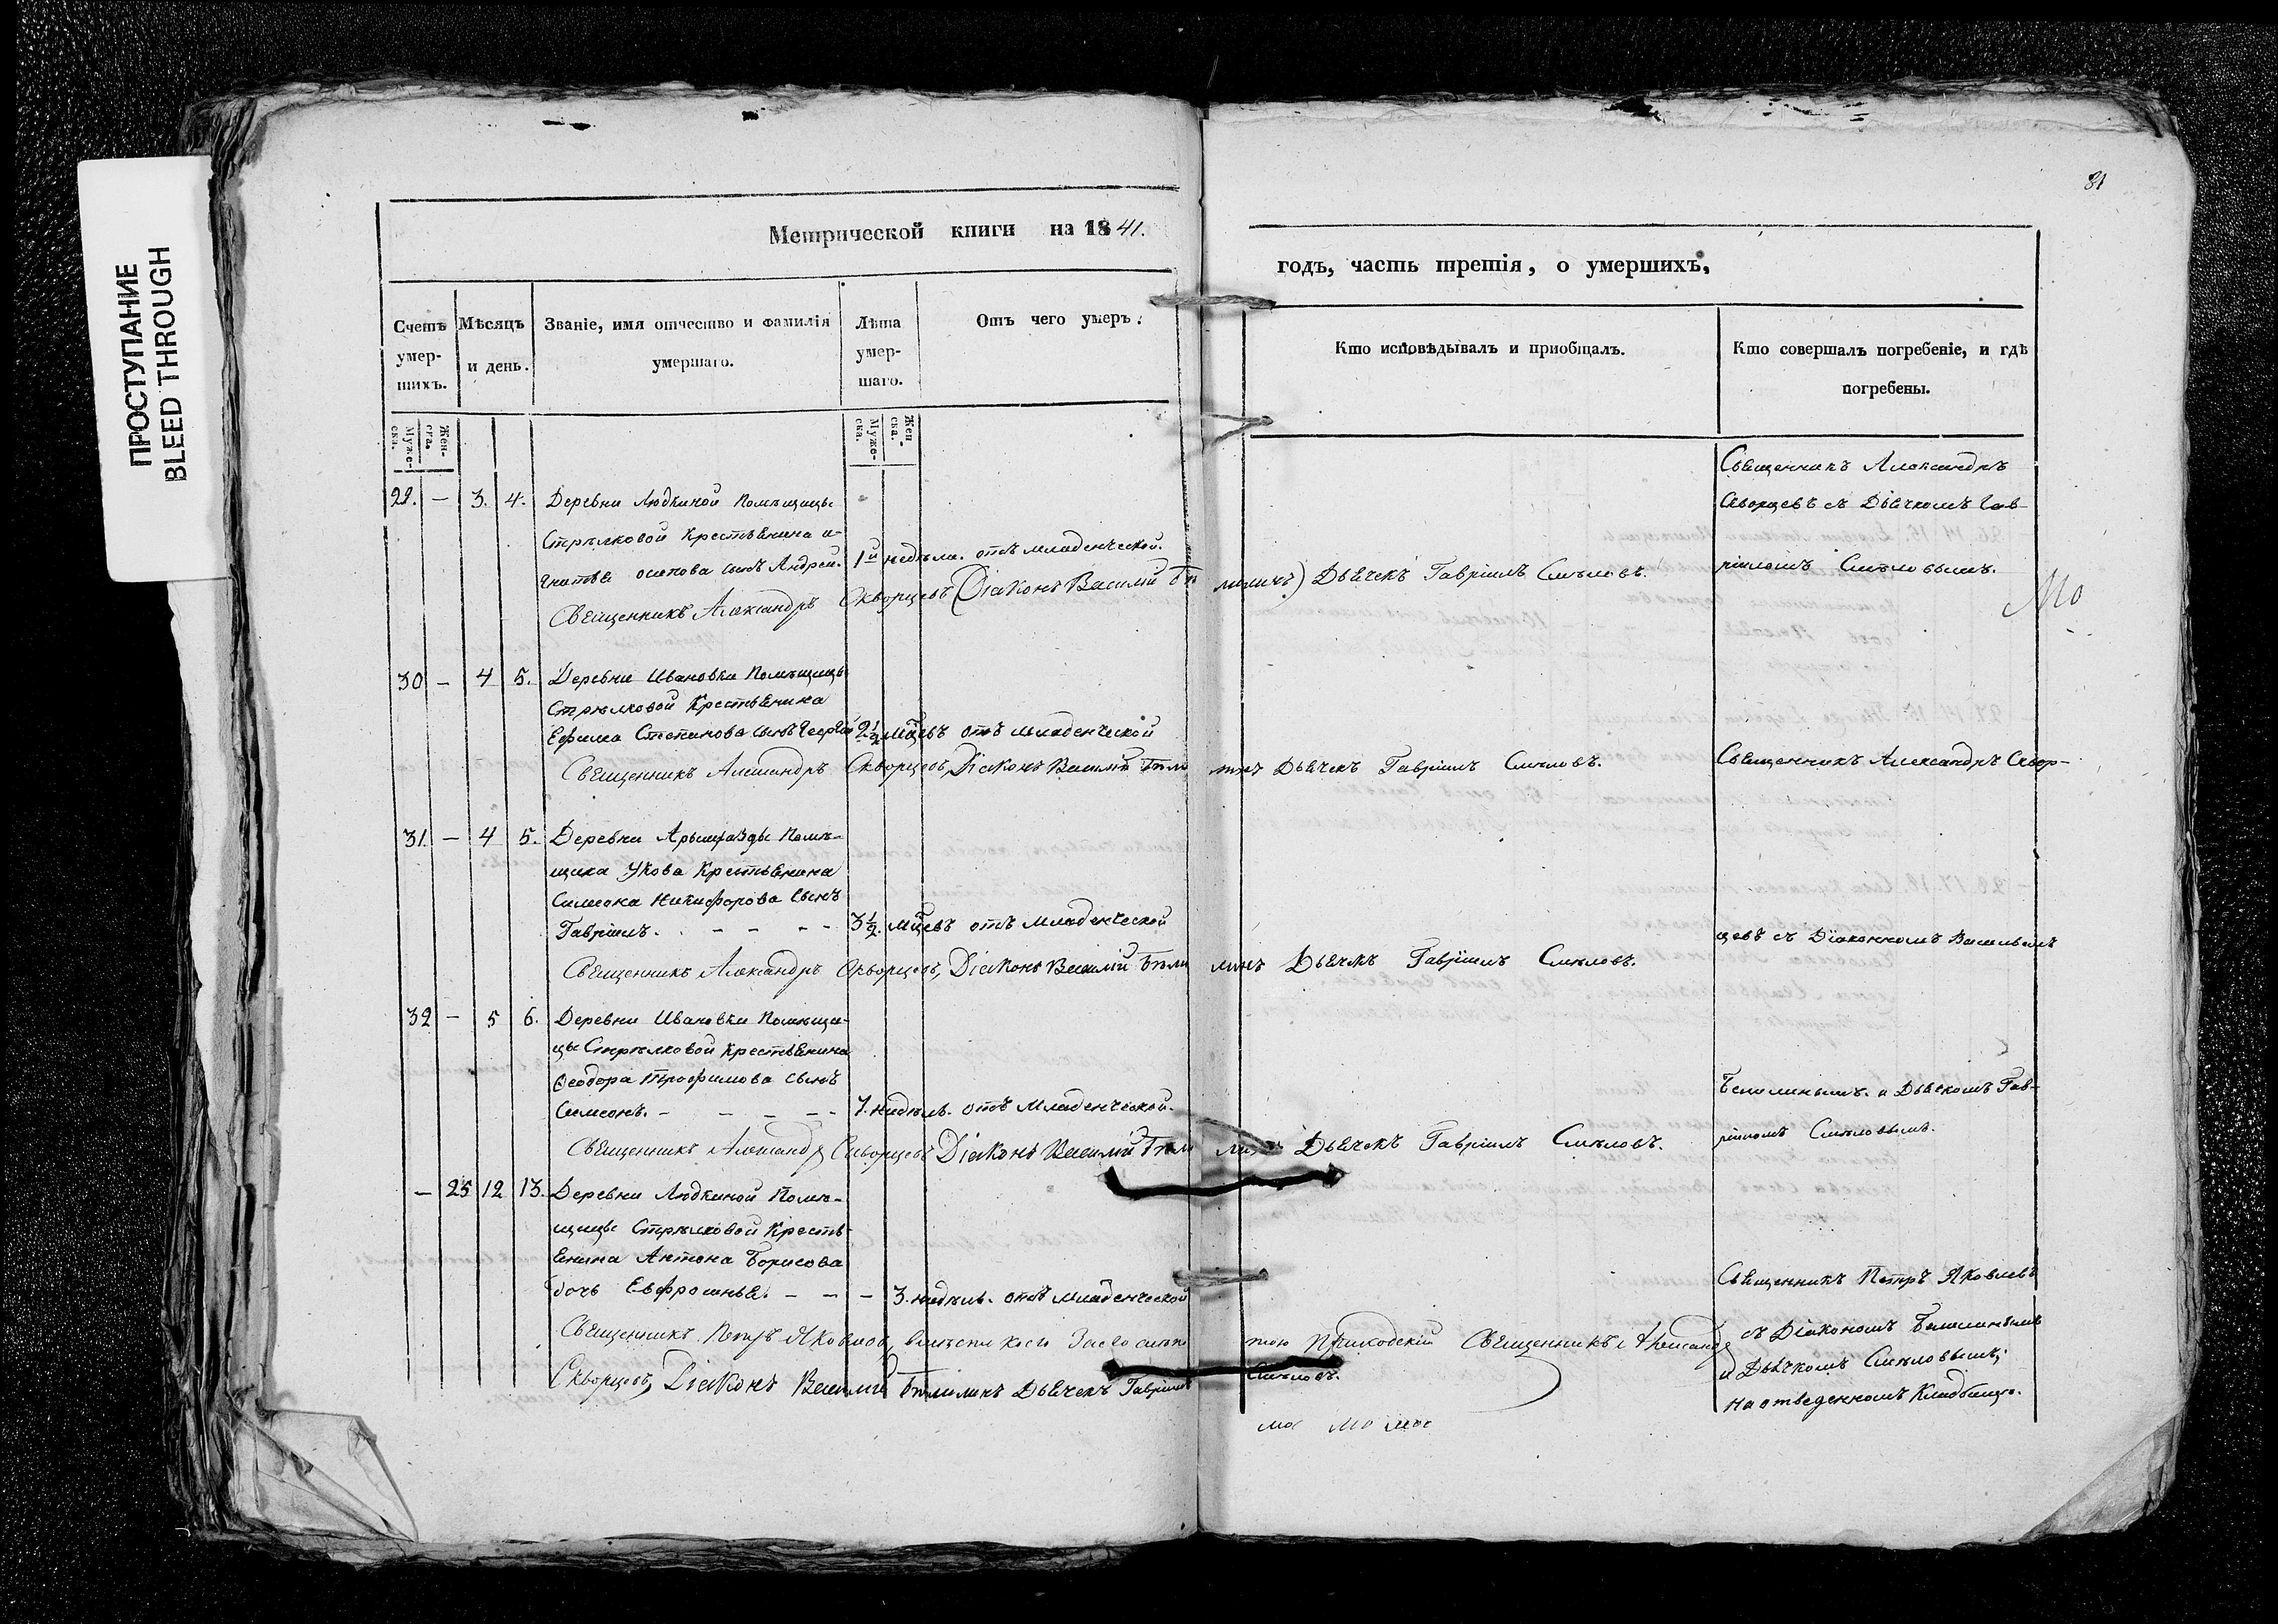 ПРОСТУПАНИЕ
BLEED THROUGH
81
Метрической книги на 1841.
годъ, часть третія, о умершихъ,
Счетъ умер-
шихъ.
Мѣсяцъ
и день.
Званіе, имя отчество и фамилія
умершаго.
Лѣта
умер-
шаго.
Отъ чего умеръ.
Кто исповѣдывалъ и приобщалъ.
Кто совершалъ погребеніе, и гдѣ
погребены.
Муже-
ска.
Жен-
ска.
Муже-
ска.
Жен
ска.
22. — 3. 4. Деревни Людкиной помѣщицы
Стрѣлковой Крестьянина и-
гнатья осипова сынъ Андрей. 1й недѣли. отъ младенческой.
Священникъ Александръ Скворцовъ Діаконъ Василій Дьячекъ Гавріилъ Смѣловъ.
Священникъ Александръ
Скворцевъ съ Дьячкомъ Гав-
ріиломъ Смѣловымъ.
Мо
30 — 4 5. Деревни Ивановки помѣщицы
Стрѣлковой Крестьянина
Ефима Степанова сынъ Георгій 2½ мцевъ отъ младенческой
Священникъ Александръ Скворцовъ, Діаконъ Василій Дьячекъ Гавріилъ Смѣловъ.
Священникъ Александръ Сквор-
31. — 4 5. Деревни помѣ-
щика Укова Крестьянина
Симеона Никифорова сынъ
Гавріилъ. - - - - 3½. мцевъ отъ младенческой
Священникъ Александръ Скворцовъ, Діаконъ Василій Дьячекъ Гавріилъ Смѣловъ.
цевъ съ Діакономъ Васильемъ
32 — 5 6. Деревни Ивановки помѣщи-
цы Стрѣлковой Крестьянина
Ѳеодора Трофимова сынъ
Симеонъ. - - - - - 7. недѣль. отъ младенческой.
Священникъ Александръ Скворцовъ Діаконъ Василій Дьячекъ Гавріилъ Смѣловъ.
и Дьячкомъ Гав-
ріиломъ Смѣловымъ.
— 25 12 13. Деревни Людкиной помѣ-
щицы Стрѣлковой Кресть-
янина Антона Борисова
дочь Евфросинья. - - - 3. недѣль. отъ младенческой
Священникъ Петръ Яковлевъ, Приходскій Священникъ Александръ
Скворцовъ, Діаконъ Василій Дьячекъ Гавріилъ Смѣловъ.
Священникъ Петръ Яковлевъ
съ Діакономъ
и Дьячкомъ Смѣловымъ;
на отведенномъ Кладбищѣ.